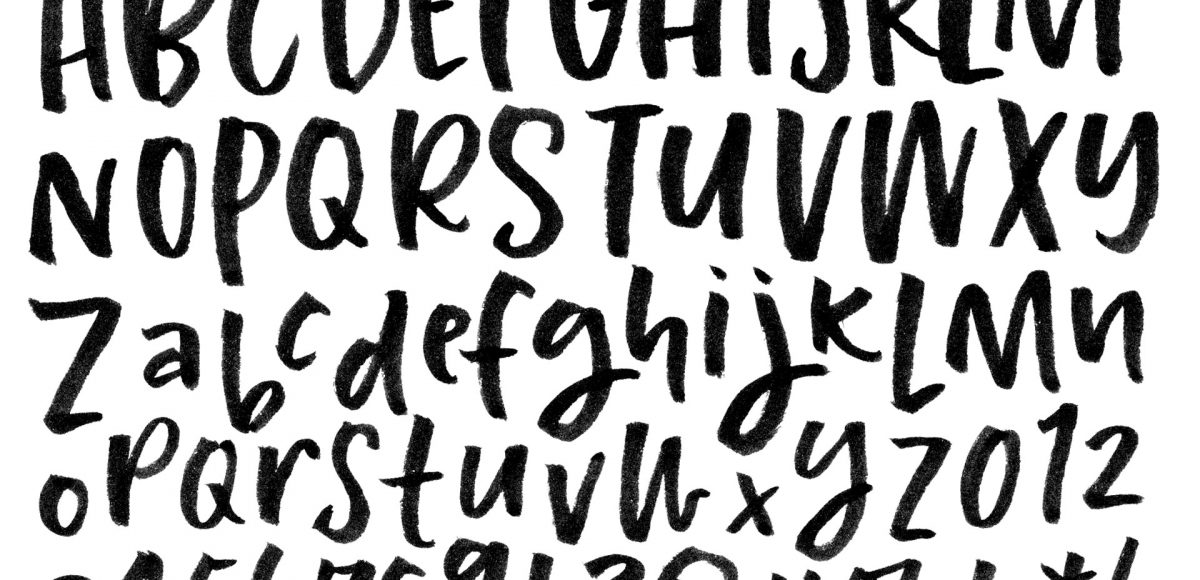 ABCDEFGHIJKLM
NOPQRSTUVWXY
Zabcdefghijklmn
opqrstuvwxyz012